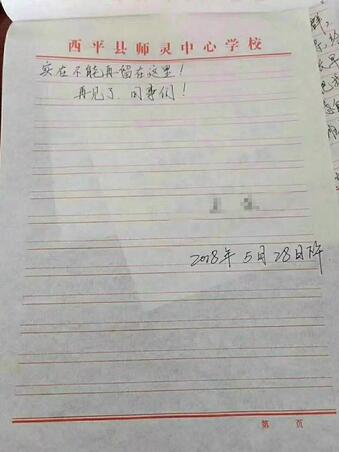 西平县师灵中心学校
实在不能再留在这里！
再见了，同事们！
2018年5月28日
第 页